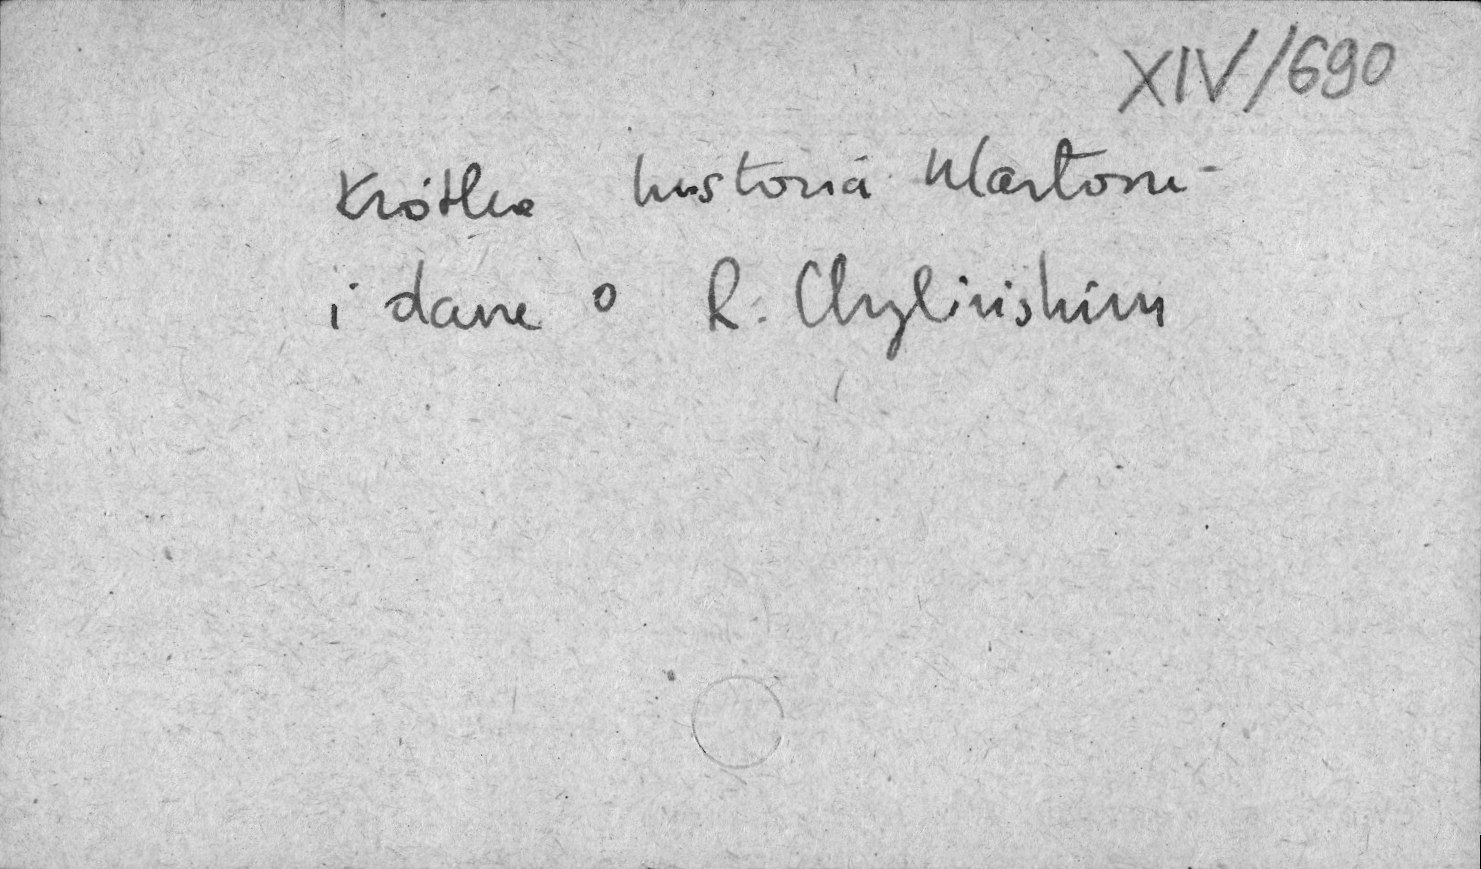 XIV/690
Krótka historia Martom
i dane o R. Chylińskim